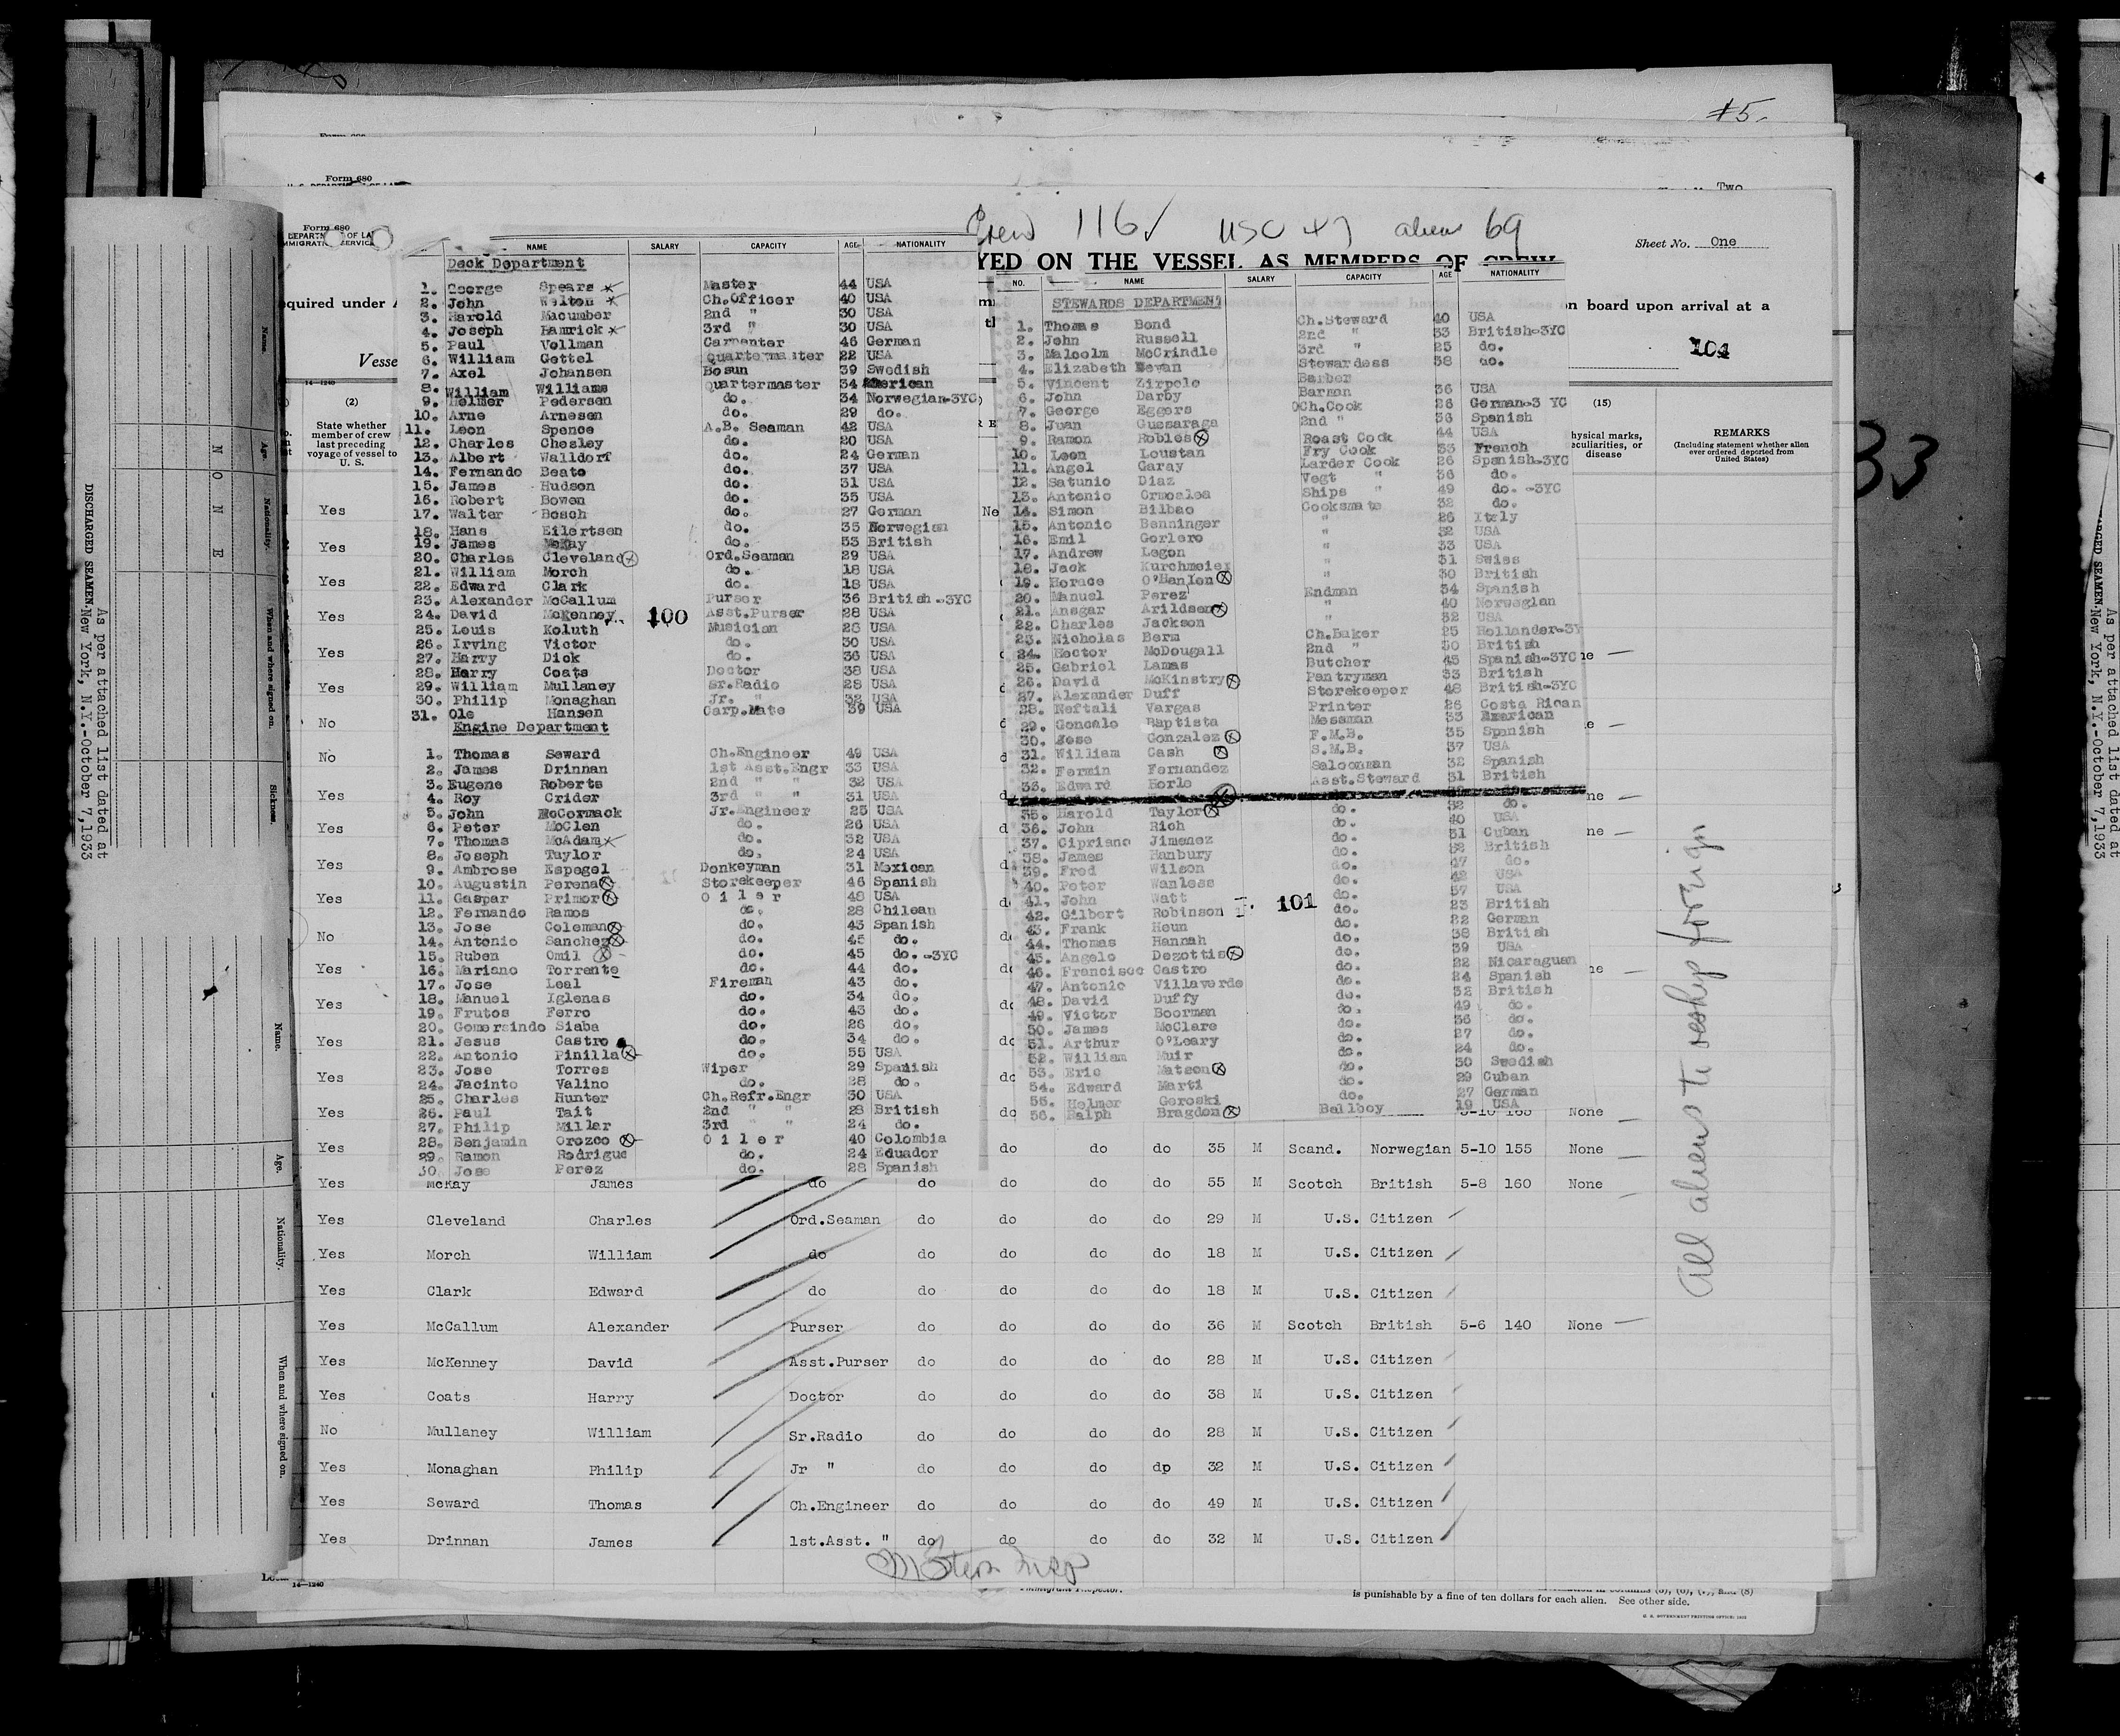 #5.
Form 680
Two
Form 680
Crew 116✓ USC 47 aliens 69
Sheet No. One
YED ON THE VESSEL AS MEMBERS OF CREW
quired under
n board upon arrival at a
Vesse
104
14—1240
(2)
State whether
member of crew
last preceding
voyage of vessel to
U. S.
(15)
hysical marks,
eculiarities, or
disease
REMARKS
(Including statement whether alien
ever ordered deported from
United States)
NAME SALARY CAPACITY AGE NATIONALITY
Deck Department
1. George Spears Master 44 USA
2. John Walton Ch.Officer 40 USA
3. Harold Macumber 2nd " 30 USA
4. Joseph Hamrick 3rd " 30 USA
5. Paul Vollman Carpenter 46 German
6. William Gettel Quartermaster 22 USA
7. Axel Johansen Bosun 39 Swedish
8. William Williams Quartermaster 34 American
9. Helmer Pedersen do. 34 Norwegian-3YC
10. Arne Arnesen do. 29 do.
11. Leon Spence A.B. Seaman 42 USA
12. Charles Chesley do. 20 USA
13. Albert Walldorf do. 24 German
14. Fernando Beato do. 37 USA
15. James Hudson do. 31 USA
16. Robert Bowen do. 35 USA
17. Walter Bosch do. 27 German
18. Hans Eilertsen do. 35 Norwegian
19. James McKay do. 53 British
20. Charles Cleveland Ord.Seaman 29 USA
21. William Morch do. 18 USA
22. Edward Clark do. 18 USA
23. Alexander McCallum Purser 36 British-3YC
24. David McKenney Asst.Purser 28 USA
100
25. Louis Koluth Musician 28 USA
26. Irving Victor do. 30 USA
27. Harry Dick do. 36 USA
28. Harry Coats Doctor 38 USA
29. William Mullaney Sr.Radio 28 USA
30. Philip Monaghan Jr. " 32 USA
31. Ole Hansen Carp.Mate 39 USA
Engine Department
1. Thomas Seward Ch.Engineer 49 USA
2. James Drinnan 1st Asst.Engr 33 USA
3. Eugene Roberts 2nd " " 32 USA
4. Roy Crider 3rd " " 31 USA
5. John McCormack Jr.Engineer 25 USA
6. Peter McClen do. 26 USA
7. Thomas McAdam do. 32 USA
8. Joseph Taylor do. 24 USA
9. Ambrose Espegel Donkeyman 31 Mexican
10. Augustin Perena Storekeeper 46 Spanish
11. Gaspar Primor Oiler 48 USA
12. Fernando Ramos do. 28 Chilean
13. Jose Coleman do. 43 Spanish
14. Antonio Sanchez do. 45 do.
15. Ruben Omil do. 45 do.-3YC
16. Mariano Torrente do. 44 do.
17. Jose Leal Fireman 43 do.
18. Manuel Iglenas do. 34 do.
19. Frutos Ferro do. 43 do.
20. Gomersindo Siaba do. 26 do.
21. Jesus Castro do. 34 do.
22. Antonio Pinilla do. 55 USA
23. Jose Torres Wiper 29 Spanish
24. Jacinto Valino do. 28 do.
25. Charles Hunter Ch.Refr.Engr 30 USA
26. Paul Tait 2nd " " 28 British
27. Philip Millar 3rd " " 24 do.
28. Benjamin Orozco Oiler 40 Colombia
29. Ramon Rodrigue do. 24 Eduador
30. Jose Perez do. 28 Spanish
NO. NAME SALARY CAPACITY AGE NATIONALITY
STEWARDS DEPARTMENT
1. Thomas Bond Ch.Steward 40 USA
2. John Russell 2nd " 33 British-3YC
3. Malcolm McCrindle 3rd " 25 do.
4. Elizabeth Bevan Stewardess 58 do.
5. Vincent Zirpolo Barber
6. John Darby Barman 36 USA
7. George Eggers Ch.Cook 26 German-3 YC
8. Juan Gussaraga 2nd " 36 Spanish
9. Ramon Robles Roast Cook 44 USA
10. Leon Loustan Fry Cook 33 French
11. Angel Garay Larder Cook 26 Spanish-3YC
12. Satunio Diaz Vegt " 36 do.
13. Antonio Ormcalea Ships " 49 do.-3YC
14. Simon Bilbao Cooksmate 32 do.
15. Antonio Benninger " 26 Italy
16. Emil Gorlero " 32 USA
17. Andrew Legon " 33 USA
18. Jack Kurchmeier " 31 Swiss
19. Horace O'Hanlon " 30 British
20. Manuel Perez Endman 34 Spanish
21. Ansgar Arildsen " 40 Norwegian
22. Charles Jackson " 32 USA
23. Nicholas Berm Ch.Baker 25 Hollander-3Y
24. Hector McDougall 2nd " 50 British
25. Gabriel Lamas Butcher 45 Spanish-3YC
26. David McKinstry Pantryman 33 British
27. Alexander Duff Storekeeper 48 British-3YC
28. Neftali Vargas Printer 26 Costa Rican
29. Goncalo Baptista Messman 33 American
30. Jose Gonzalez F.M.B. 35 Spanish
31. William Cash S.M.B. 37 USA
32. Fermin Fernandez Saloonman 32 Spanish
33. Edward Horle Asst.Steward 31 British
35. Harold Taylor do. 32 do.
36. John Rich do. 40 USA
37. Cipriano Jimenez do. 31 Cuban
38. James Hanbury do. 32 British
39. Fred Wilson do. 47 do.
40. Peter Wanless do. 42 USA
41. John Watt do. 57 USA
101
42. Gilbert Robinson do. 23 British
43. Frank Heun do. 22 German
44. Thomas Hannah do. 38 British
45. Angelo Dezottis do. 39 USA
46. Francisco Castro do. 22 Nicaraguan
47. Antonio Villaverde do. 24 Spanish
48. David Duffy do. 32 British
49. Victor Boorman do. 49 do.
50. James McClare do. 36 do.
51. Arthur O'Leary do. 27 do.
52. William Muir do. 24 do.
53. Eric Matson do. 30 Swedish
54. Edward Marti do. 29 Cuban
55. Helmer Goroski do. 27 German
56. Ralph Bragdon Bellboy 19 USA
Yes
Yes
Yes
Yes
Yes
Yes
No
No
Yes
Yes
Yes
Yes
No
Yes
Yes
Yes
Yes
Yes None
Yes do do do 35 M Scand. Norwegian 5-10 155 None
Yes McKay James do do do do do 55 M Scotch British 5-8 160 None
Yes Cleveland Charles Ord.Seaman do do do do 29 M U.S. Citizen
Yes Morch William do do do do do 18 M U.S. Citizen
Yes Clark Edward do do do do do 18 M U.S. Citizen
Yes McCallum Alexander Purser do do do do 36 M Scotch British 5-6 140 None
Yes McKenney David Asst.Purser do do do do 28 M U.S. Citizen
Yes Coats Harry Doctor do do do do 38 M U.S. Citizen
No Mullaney William Sr.Radio do do do do 28 M U.S. Citizen
Yes Monaghan Philip Jr " do do do dp 32 M U.S. Citizen
Yes Seward Thomas Ch.Engineer do do do do 49 M U.S. Citizen
Yes Drinnan James 1st.Asst. " do do do do 32 M U.S. Citizen
All aliens to reship foreign
33
14—1240
Immigrant Inspector.
is punishable by a fine of ten dollars for each alien. See other side.
U. S. GOVERNMENT PRINTING OFFICE: 1932
Name.
Age.
Nationality.
When and where signed on.
Sickness.
Name.
Age.
Nationality.
When and where signed on.
NONE
As per attached list dated at
DISCHARGED SEAMEN.New York, N.Y.-October 7,1933
As per attached list dated at
ARGED SEAMEN.New York, N.Y.-October 7,1933